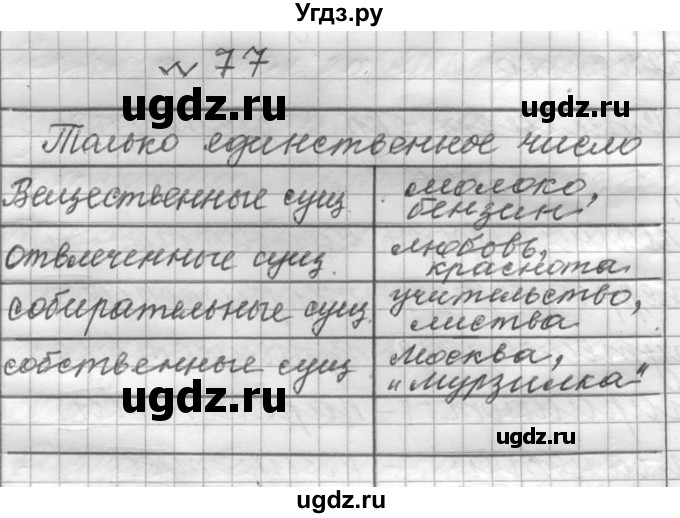 Угдз.ру
№ 77
ugdz.ru
ugdz.ru
Только единственное число
Вещественные сущ. молоко,
бензин
отвлеченные сущ. любовь,
краснота
собирательные сущ. учительство,
листва
собственные сущ Москва,
"Мурзилка"
ugdz.ru
ugdz.ru
ugdz.ru